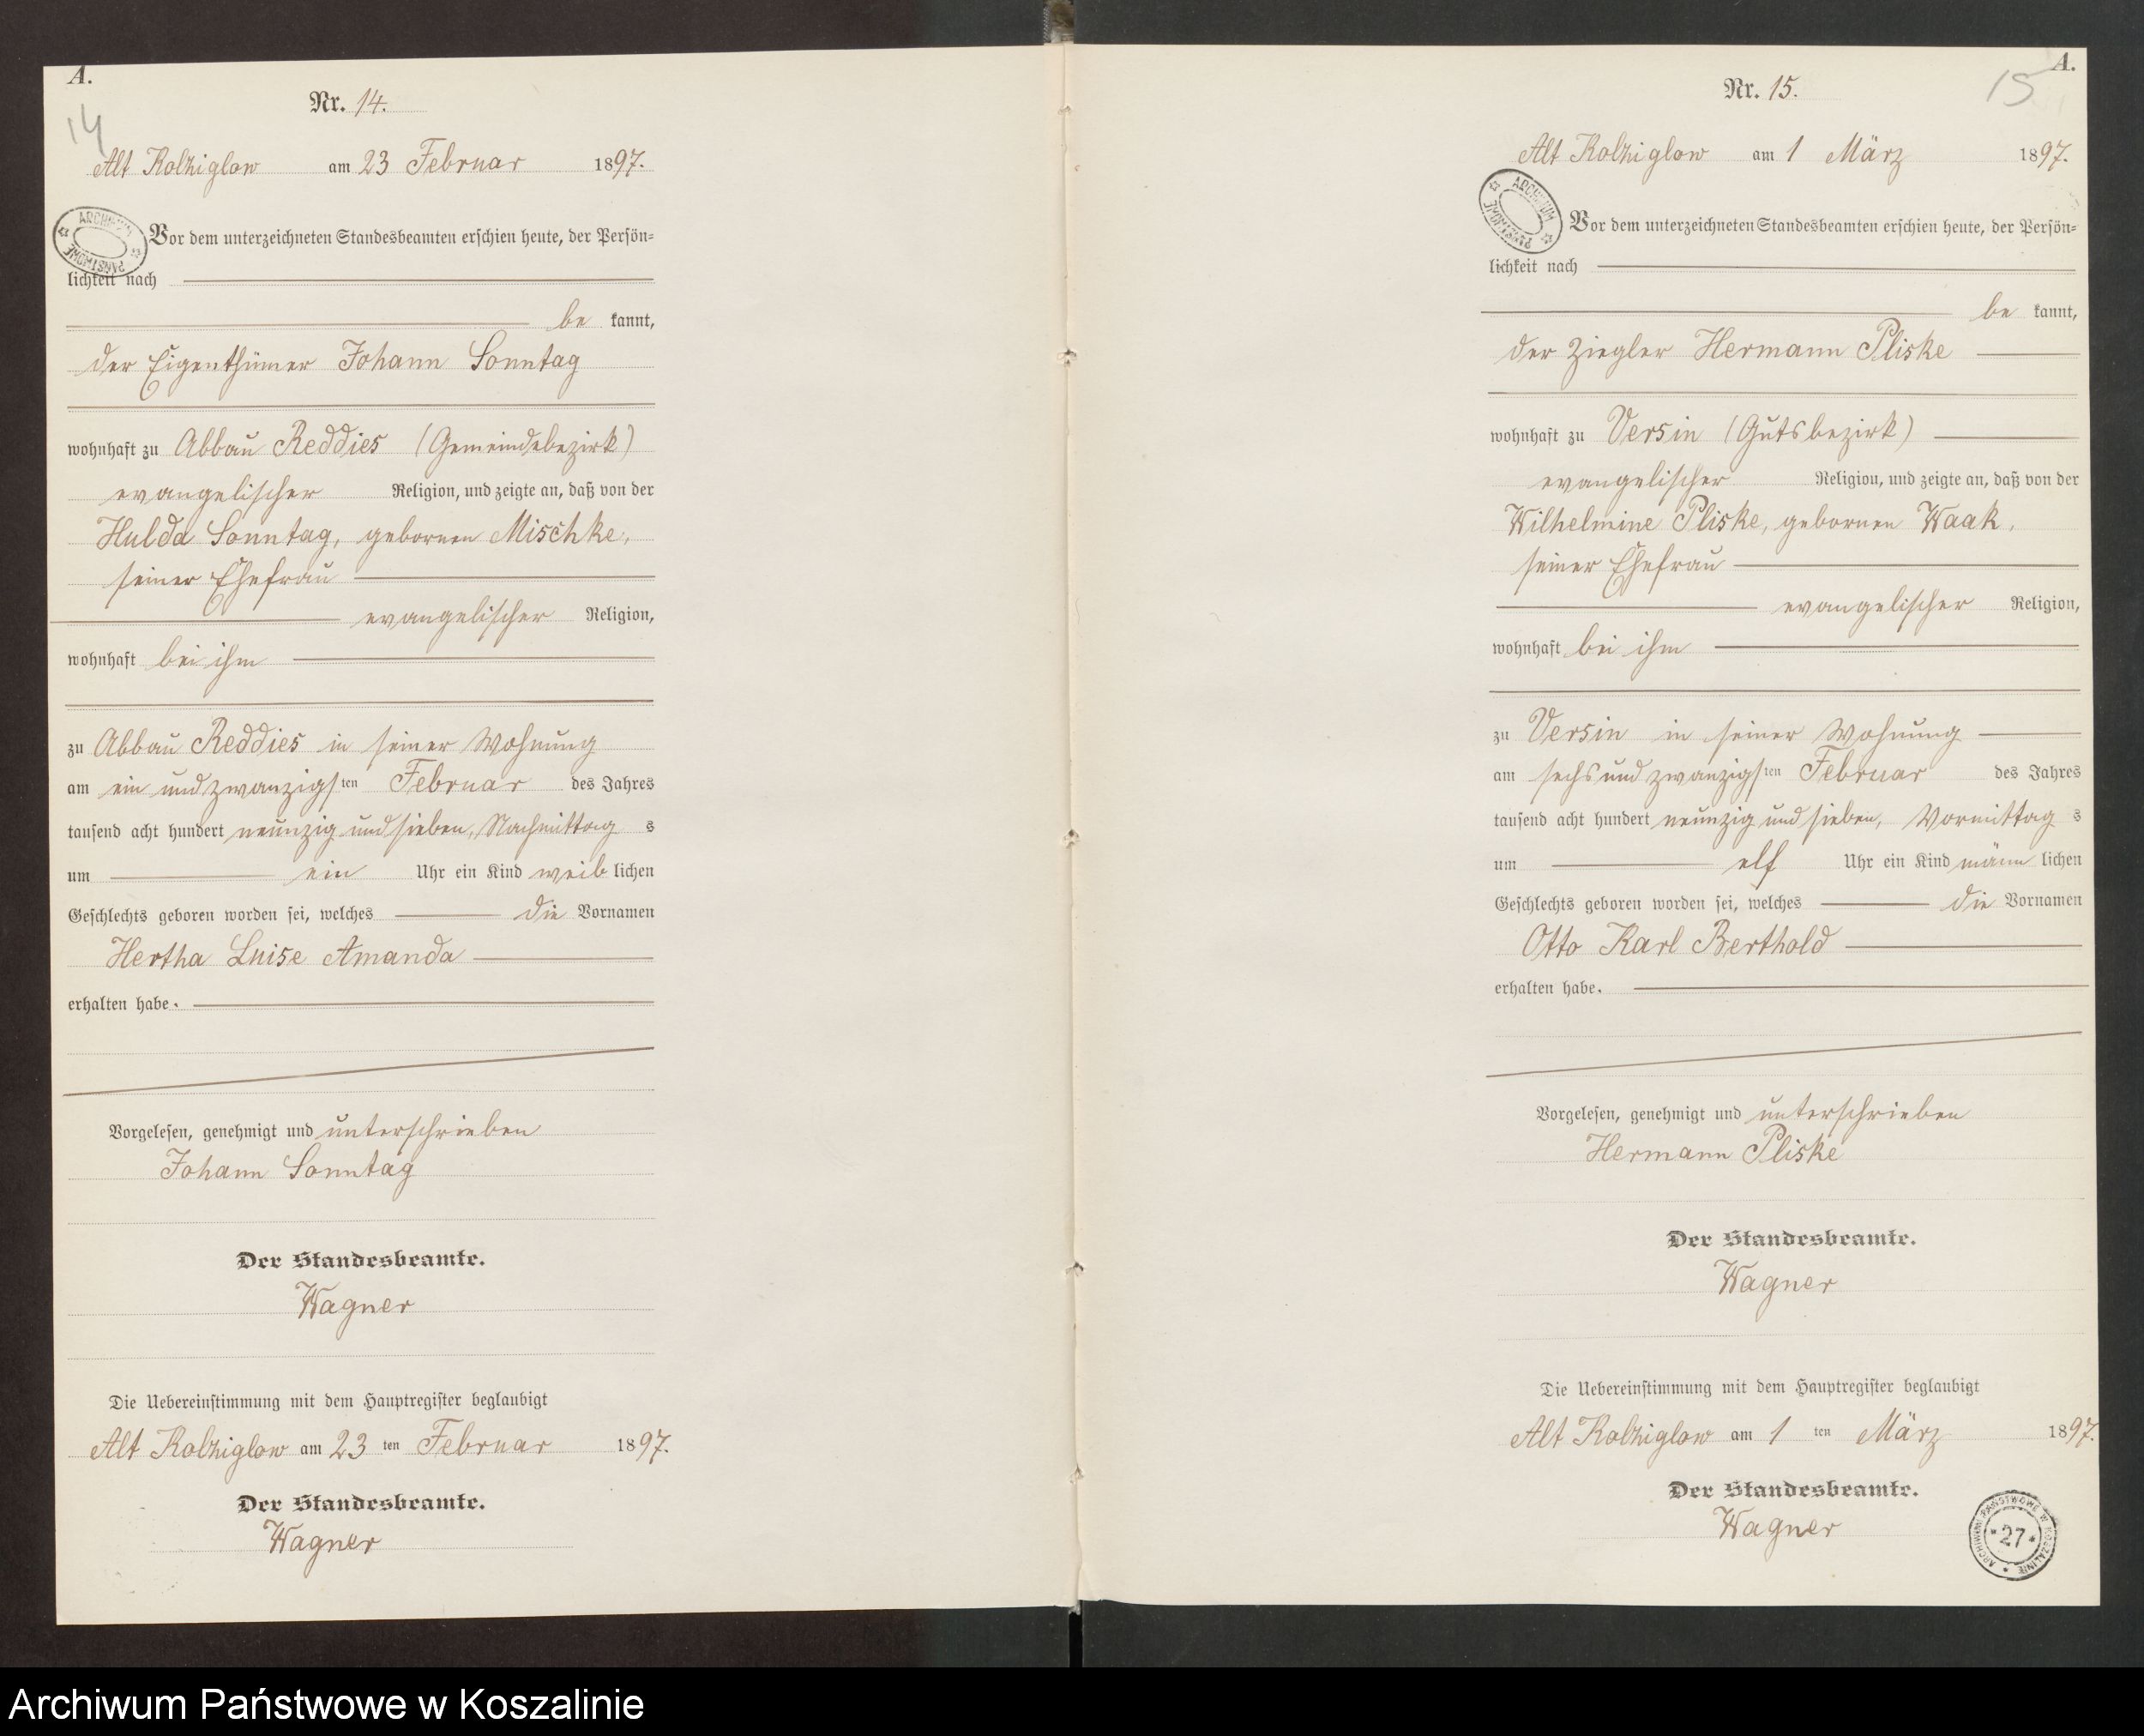 A.
14
Nr. 14.
Alt Kolziglow am 23 Februar 1897.
ARCHIWUM PAŃSTWOWE
Vor dem unterzeichneten Standesbeamten erschien heute, der Persön=
lichkeit nach
be kannt,
der Eigenthümer Johann Sonntag
wohnhaft zu Abbau Reddies (Gemeindebezirk)
evangelischer Religion, und zeigte an, daß von der
Hulda Sonntag, geborenen Mischke,
seiner Ehefrau
evangelischer Religion,
wohnhaft bei ihm
zu Abbau Reddies in seiner Wohnung
am ein und zwanzigsten Februar des Jahres
tausend acht hundert neunzig und sieben, Nachmittag s
um ein Uhr ein Kind weib lichen
Geschlechts geboren worden sei, welches die Vornamen
Hertha Luise Amanda
erhalten habe.
Vorgelesen, genehmigt und unterschrieben
Johann Sonntag
Der Standesbeamte.
Wagner
Die Uebereinstimmung mit dem Hauptregister beglaubigt
Alt Kolziglow am 23 ten Februar 1897.
Der Standesbeamte.
Wagner
A.
15
Nr. 15.
Alt Kolziglow am 1 März 1897.
ARCHIWUM PAŃSTWOWE
Vor dem unterzeichneten Standesbeamten erschien heute, der Persön=
lichkeit nach
be kannt,
der Ziegler Hermann Pliske
wohnhaft zu Versin (Gutsbezirk)
evangelischer Religion, und zeigte an, daß von der
Wilhelmine Pliske, geborenen Waak,
seiner Ehefrau
evangelischer Religion,
wohnhaft bei ihm
zu Versin in seiner Wohnung
am sechs und zwanzigsten Februar des Jahres
tausend acht hundert neunzig und sieben, Vormittag s
um elf Uhr ein Kind männ lichen
Geschlechts geboren worden sei, welches die Vornamen
Otto Karl Berthold
erhalten habe.
Vorgelesen, genehmigt und unterschrieben
Hermann Pliske
Der Standesbeamte.
Wagner
Die Uebereinstimmung mit dem Hauptregister beglaubigt
Alt Kolziglow am 1 ten März 1897.
Der Standesbeamte.
Wagner
ARCHIWUM PAŃSTWOWE W KOSZALINIE
* 27 *
Archiwum Państwowe w Koszalinie